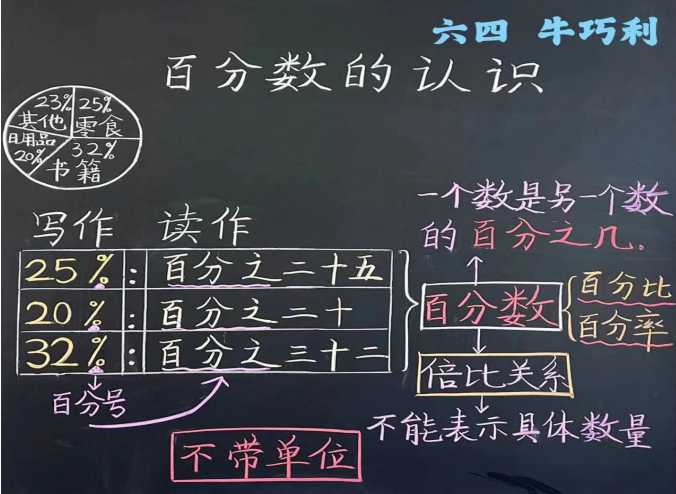 六四 牛巧利
百分数的认识
23% 25%
其他 零食
日用品 32%
20% 书籍
一个数是另一个数
的百分之几.
写作 读作
25%: 百分之二十五
20%: 百分之二十
32%: 百分之三十二
百分号
百分数
百分比
百分率
倍比关系
不能表示具体数量
不带单位